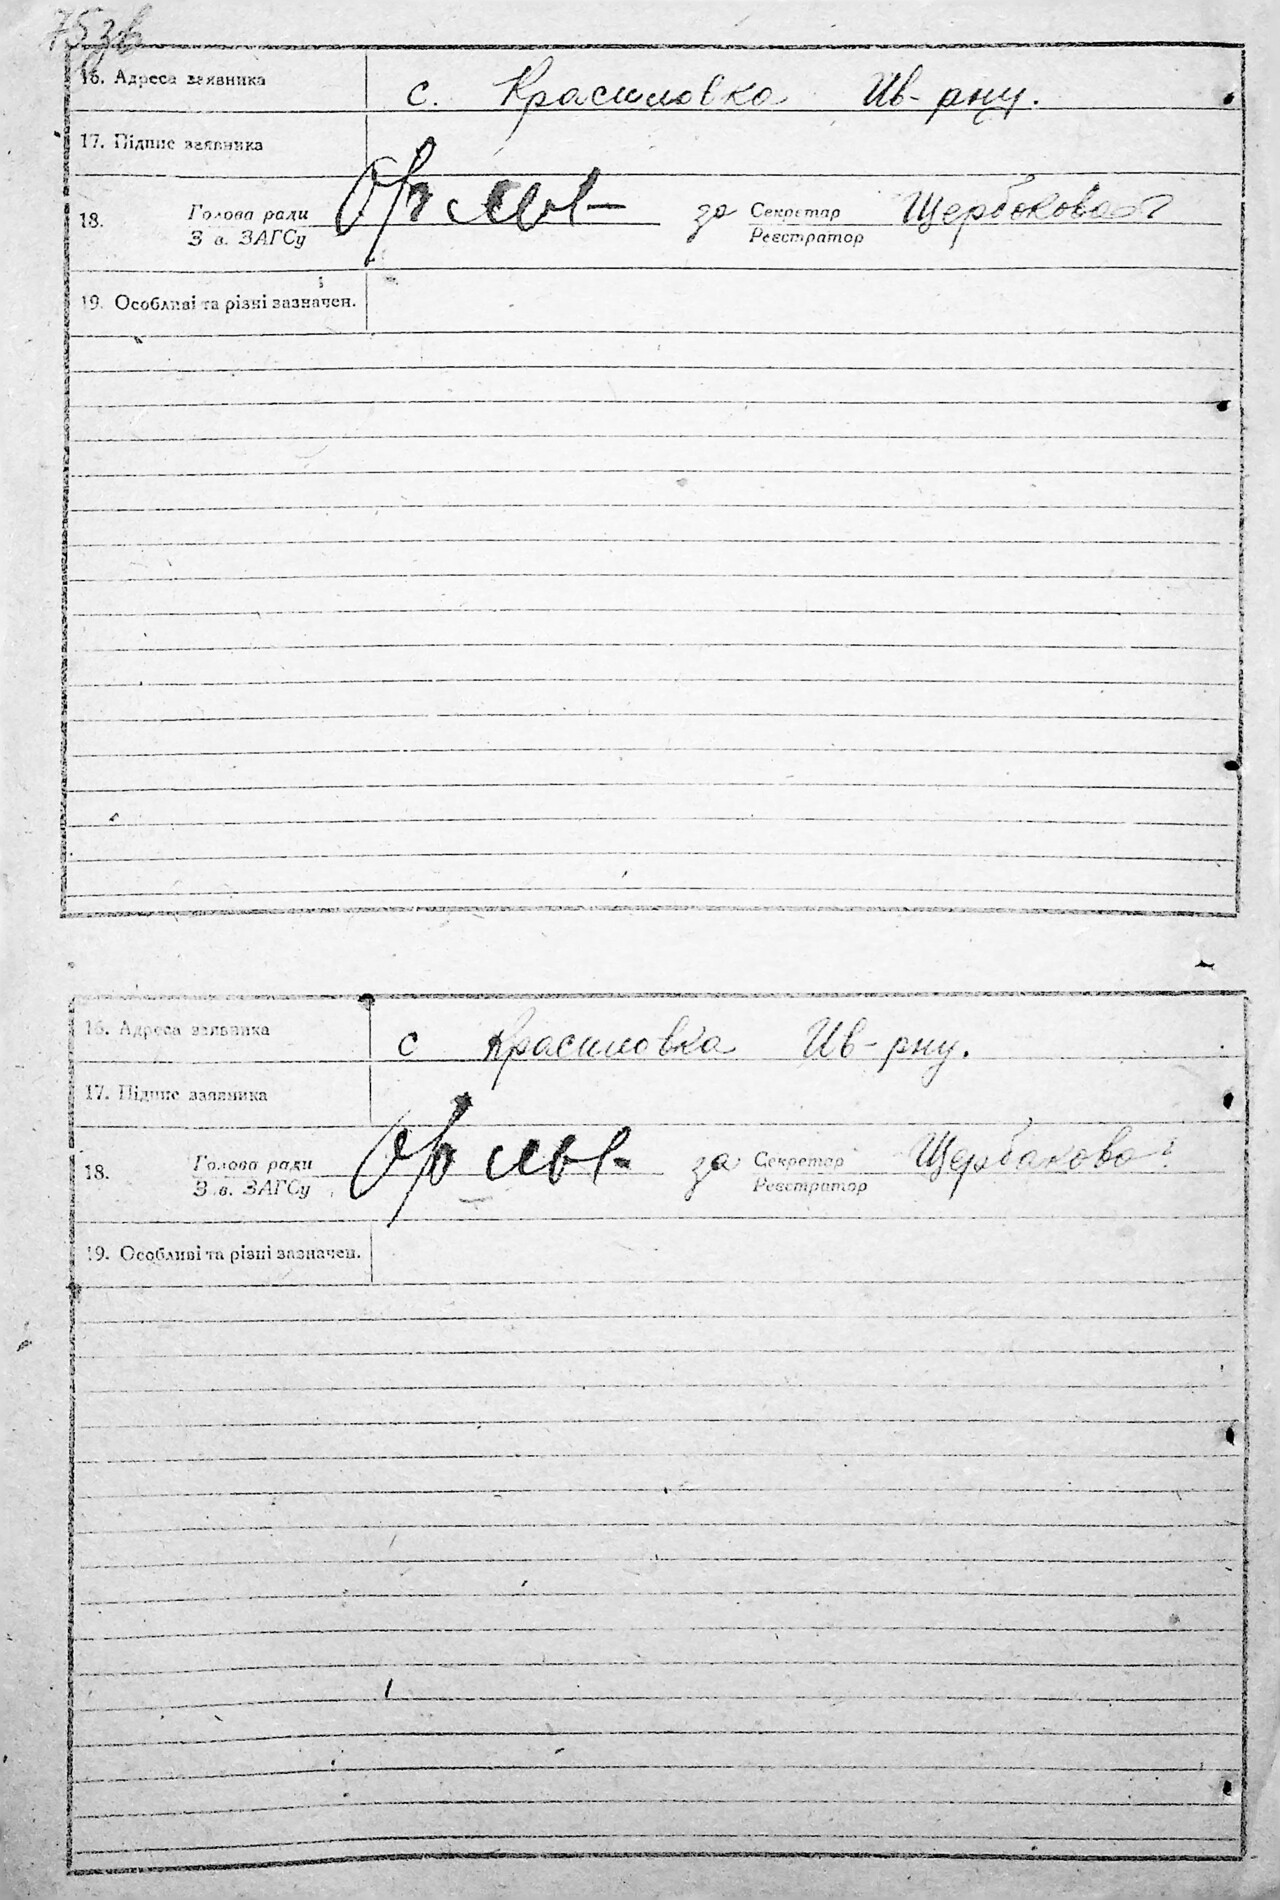 75зв
16. Адреса заявника с. Красиловка Ив-рну.
17. Підпис заявника
18. Голова ради за Секретар Щербакова
З в. ЗАГСу Реєстратор
19. Особливі та різні зазначен.
16. Адреса заявника с Красиловка Ив-рну.
17. Підпис заявника
18. Голова ради за Секретар Щербакова
З.в. ЗАГСу Реєстратор
19. Особливі та різні зазначен.